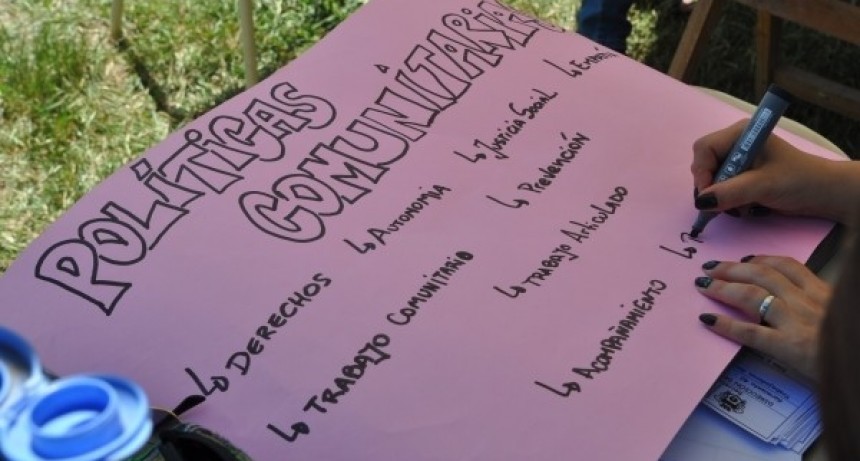 POLÍTICAS
COMUNITARIAS
↳ DERECHOS
↳ AUTONOMIA
↳ Justicia Social
↳ TRABAJO Comunitario
↳ Prevención
↳ TRABAJO Articulado
↳ ACOMPAÑAMIENTO